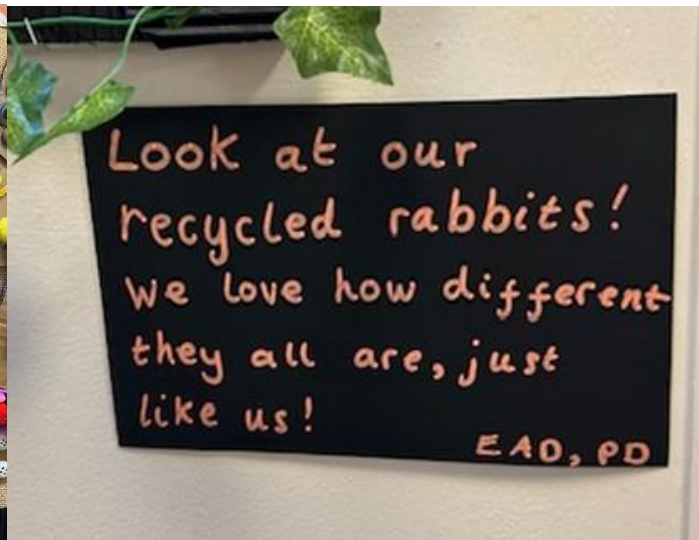 Look at our
recycled rabbits!
We love how different
they all are, just
like us!
EAD, PD